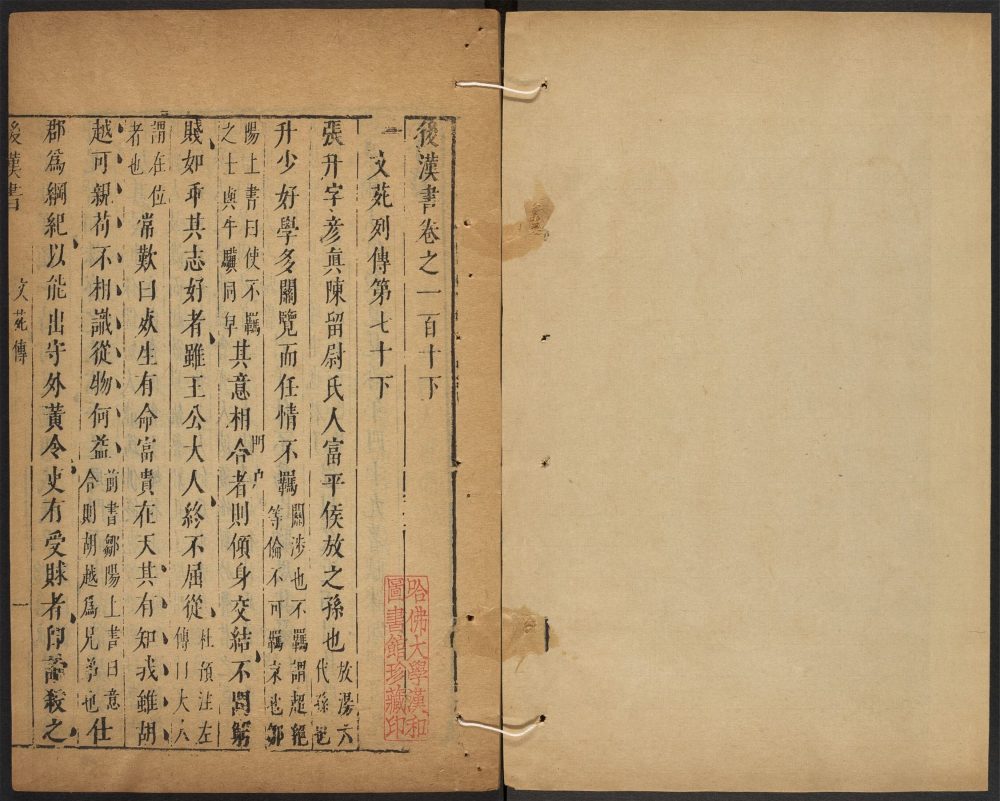 後漢書卷之一百十下
文苑列傳第七十下
張升字彥真陳留尉氏人富平侯放之孫也放湯六代孫也
升少好學多關覽而任情不羈關涉也不羈謂超絕等倫不可羈束也鄒
陽上書曰使不羈之士與牛驥同皁其意相合者則傾身交結不問窮
門户
賤如乖其志好者雖王公大人終不屈從杜預注左傳曰大人
謂在位者也常歎曰死生有命富貴在天其有知我雖胡
越可親苟不相識從物何益前書鄒陽上書曰意合則胡越爲兄弟也仕
郡爲綱紀以能出守外黃令吏有受賕者即論殺之
後漢書
文苑傳
一
哈佛大學漢和圖書館珍藏印